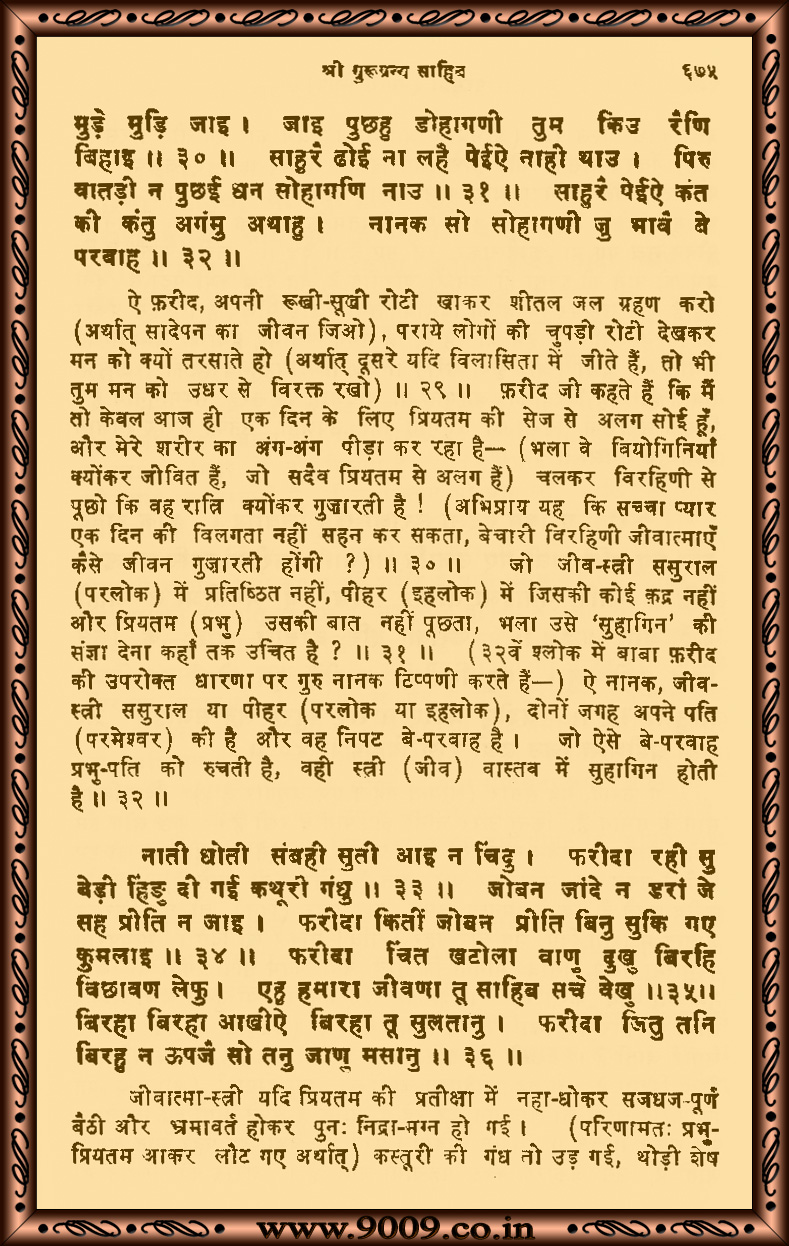 श्री गुरूग्रन्थ साहिब ६७५
मुड़े मुड़ि जाइ। जाइ पुछहु डोहागणी तुम किउ रैणि
बिहाइ ॥ ३० ॥ साहुरै ढोई ना लहै पेईऐ नाही थाउ। पिरु
वातड़ी न पुछई धन सोहागणि नाउ ॥ ३१ ॥ साहुरै पेईऐ कंत
की कंतु अगंमु अथाहु। नानक सो सोहागणी जु भावै बे
परवाह ॥ ३२ ॥
ऐ फ़रीद, अपनी रूखी-सूखी रोटी खाकर शीतल जल ग्रहण करो
(अर्थात् सादेपन का जीवन जिओ), पराये लोगों की चुपड़ी रोटी देखकर
मन को क्यों तरसाते हो (अर्थात् दूसरे यदि विलासिता में जीते हैं, तो भी
तुम मन को उधर से विरक्त रखो) ॥ २९ ॥ फ़रीद जी कहते हैं कि मैं
तो केवल आज ही एक दिन के लिए प्रियतम की सेज से अलग सोई हूँ,
और मेरे शरीर का अंग-अंग पीड़ा कर रहा है— (भला वे वियोगिनियाँ
क्योंकर जीवित हैं, जो सदैव प्रियतम से अलग हैं) चलकर विरहिणी से
पूछो कि वह रात्रि क्योंकर गुज़ारती है ! (अभिप्राय यह कि सच्चा प्यार
एक दिन की विलगता नहीं सहन कर सकता, बेचारी विरहिणी जीवात्माएँ
कैसे जीवन गुज़ारती होंगी ?) ॥ ३० ॥ जो जीव-स्त्री ससुराल
(परलोक) में प्रतिष्ठित नहीं, पीहर (इहलोक) में जिसकी कोई क़द्र नहीं
और प्रियतम (प्रभु) उसकी बात नहीं पूछता, भला उसे ‘सुहागिन’ की
संज्ञा देना कहाँ तक उचित है ? ॥ ३१ ॥ (३२वें श्लोक में बाबा फ़रीद
की उपरोक्त धारणा पर गुरु नानक टिप्पणी करते हैं—) ऐ नानक, जीव-
स्त्री ससुराल या पीहर (परलोक या इहलोक), दोनों जगह अपने पति
(परमेश्वर) की है और वह निपट बे-परवाह है। जो ऐसे बे-परवाह
प्रभु-पति को रुचती है, वही स्त्री (जीव) वास्तव में सुहागिन होती
है ॥ ३२ ॥
नाती धोती संबही सुती आइ न चिंदु। फरीदा रही सु
बेड़ी हिंङु दी गई कथूरी गंधु ॥ ३३ ॥ जोबन जांदे न डरां जे
सह प्रीति न जाइ। फरीदा कितीं जोबन प्रीति बिनु सुकि गए
कुमलाइ ॥ ३४ ॥ फरीदा चिंत खटोला वाणु दुखु बिरहि
विछावण लेफु। एहु हमारा जीवणा तू साहिब सचे वेखु ॥३५॥
बिरहा बिरहा आखीऐ बिरहा तू सुलतानु। फरीदा जितु तनि
बिरहु न ऊपजै सो तनु जाणु मसानु ॥ ३६ ॥
जीवात्मा-स्त्री यदि प्रियतम की प्रतीक्षा में नहा-धोकर सजधज-पूर्ण
बैठी और भ्रमावर्त होकर पुनः निद्रा-मग्न हो गई। (परिणामतः प्रभु-
प्रियतम आकर लौट गए अर्थात्) कस्तूरी की गंध तो उड़ गई, थोड़ी शेष
www.9009.co.in